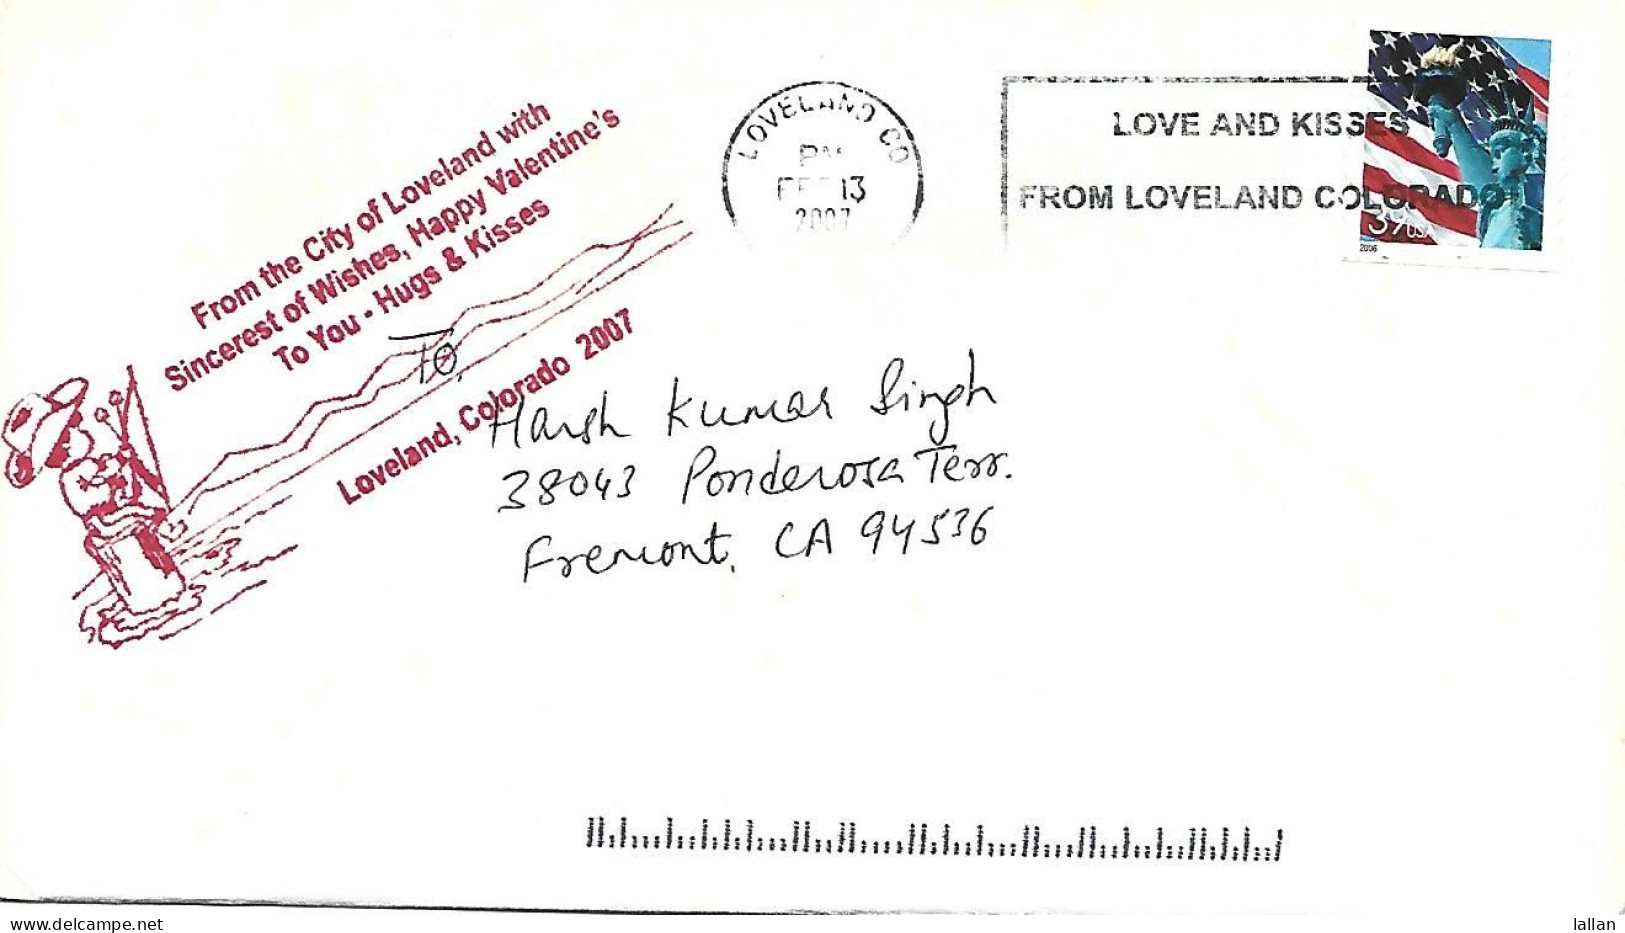 From the City of Loveland with
Sincerest of Wishes, Happy Valentine's
To You - Hugs & Kisses
Loveland, Colorado 2007
LOVELAND CO
PM
FEB 13
2007
LOVE AND KISSES
FROM LOVELAND COLORADO!
39 USA
2006
To,
Harsh Kumar Singh
38043 Ponderosa Terr.
Fremont, CA 94536
www.delcampe.net
lallan